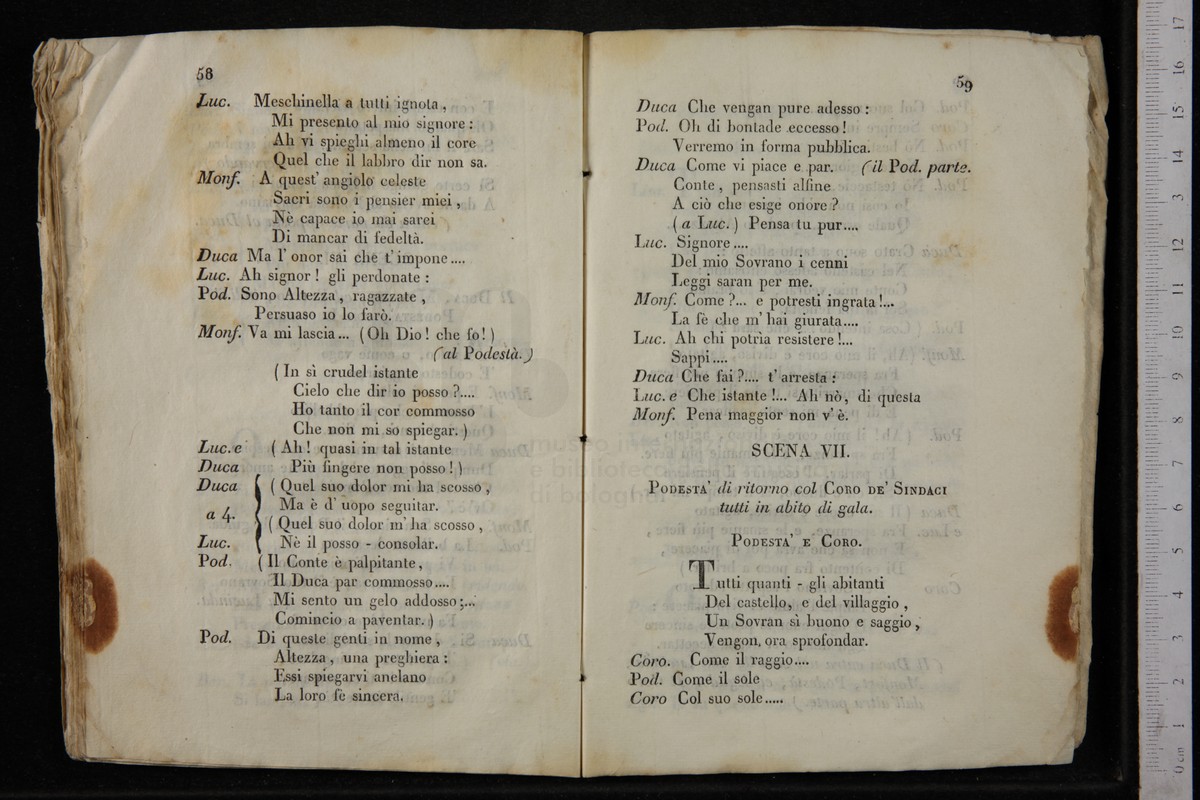 58
Luc. Meschinella a tutti ignota,
Mi presento al mio signore:
Ah vi spieghi almeno il core
Quel che il labbro dir non sa.
Monf. A quest' angiolo celeste
Sacri sono i pensier miei,
Nè capace io mai sarei
Di mancar di fedeltà.
Duca Ma l' onor sai che t' impone....
Luc. Ah signor! gli perdonate:
Pod. Sono Altezza, ragazzate,
Persuaso io lo farò.
Monf. Va mi lascia... (Oh Dio! che fo!)
(al Podestà.)
(In sì crudel istante
Cielo che dir io posso?....
Ho tanto il cor commosso
Che non mi so spiegar.)
Luc. e (Ah! quasi in tal istante
Duca Più fingere non posso!)
Duca (Quel suo dolor mi ha scosso,
a 4. Ma è d' uopo seguitar.
(Quel suo dolor m' ha scosso,
Luc. Nè il posso - consolar.
Pod. (Il Conte è palpitante,
Il Duca par commosso....
Mi sento un gelo addosso;...
Comincio a paventar.)
Pod. Di queste genti in nome,
Altezza, una preghiera:
Essi spiegarvi anelano
La loro fe sincera.
59
Duca Che vengan pure adesso:
Pod. Oh di bontade eccesso!
Verremo in forma pubblica.
Duca Come vi piace e par. (il Pod. parte.
Conte, pensasti alfine
A ciò che esige onore?
(a Luc.) Pensa tu pur....
Luc. Signore....
Del mio Sovrano i cenni
Leggi saran per me.
Monf. Come?... e potresti ingrata!...
La fè che m' hai giurata....
Luc. Ah chi potrìa resistere!...
Sappi....
Duca Che fai?.... t' arresta:
Luc. e Che istante!... Ah nò, di questa
Monf. Pena maggior non v' è.
SCENA VII.
PODESTA' di ritorno col CORO DE' SINDACI
tutti in abito di gala.
PODESTA' E CORO.
Tutti quanti - gli abitanti
Del castello, e del villaggio,
Un Sovran sì buono e saggio,
Vengon, ora sprofondar.
Coro. Come il raggio....
Pod. Come il sole
Coro Col suo sole.....
museo
e biblioteca
di bologna
0 cm 1 2 3 4 5 6 7 8 9 10 11 12 13 14 15 16 17